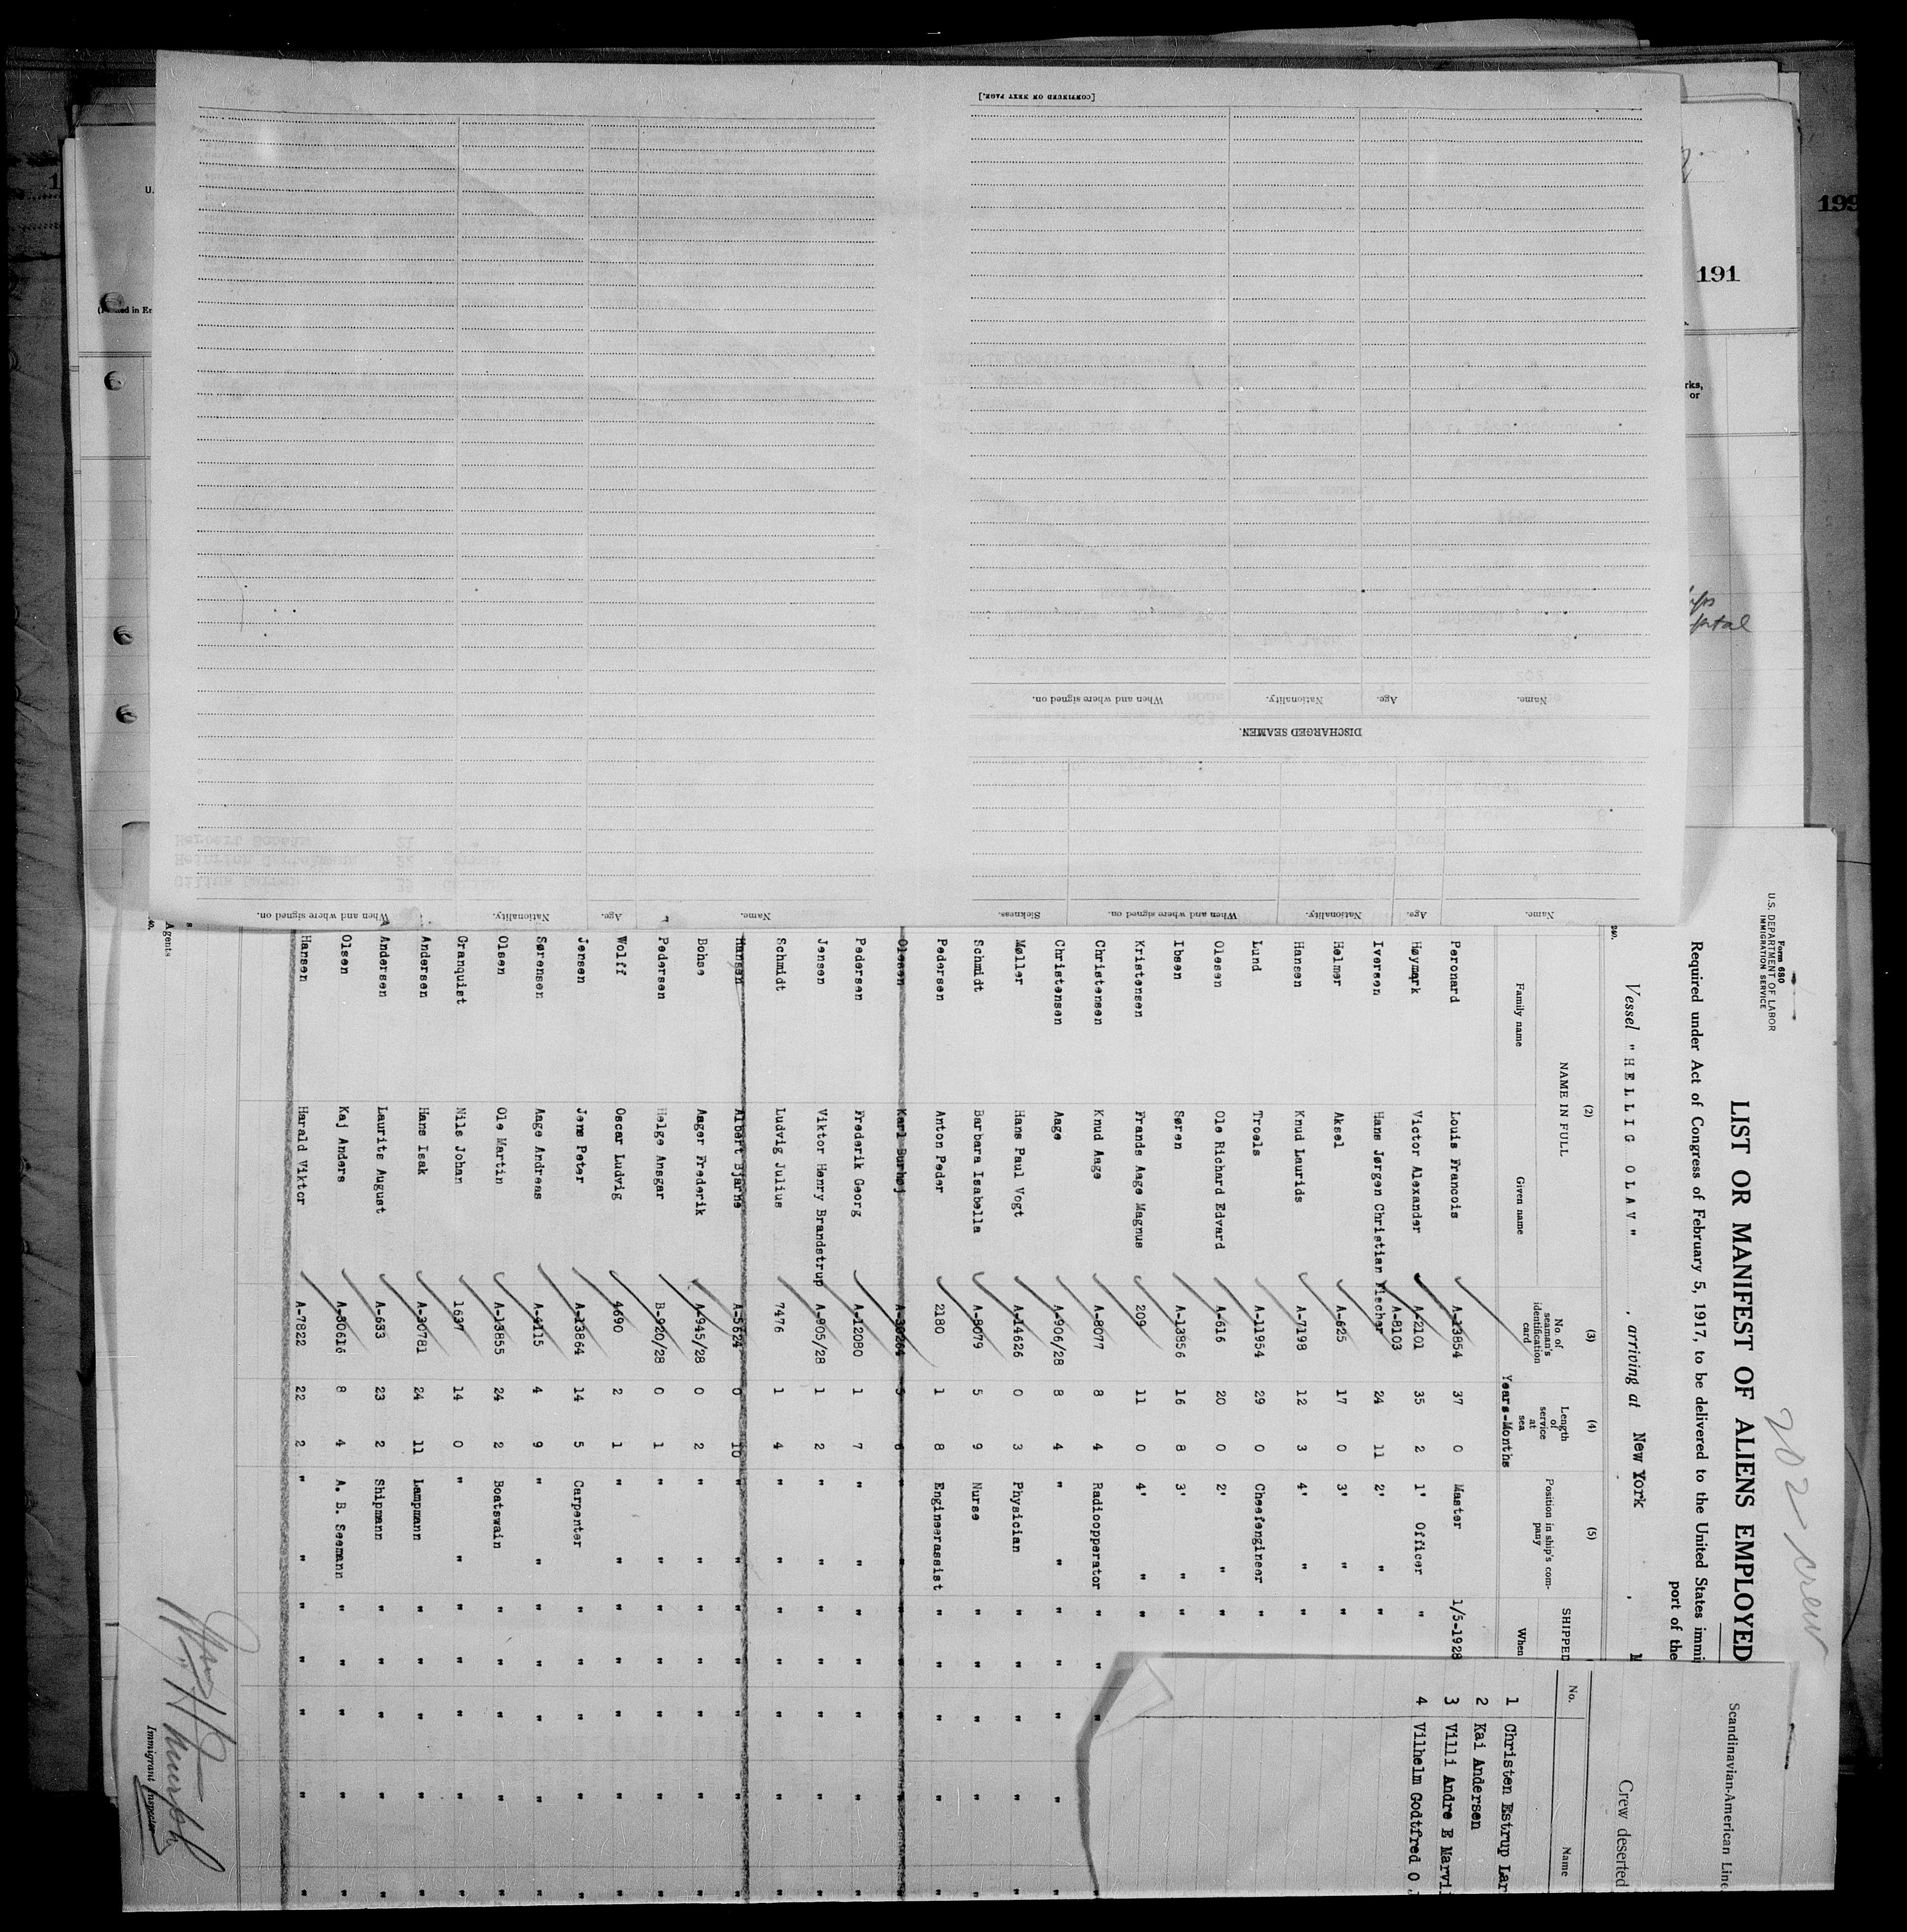 199
191
[CONTINUED ON NEXT PAGE.]
Name.
Age.
Nationality.
When and where signed on.
DISCHARGED SEAMEN.
Name.
Age.
Nationality.
When and where signed on.
Sickness.
Name.
Age.
Nationality.
When and where signed on.
Form 680
U.S. DEPARTMENT OF LABOR
IMMIGRATION SERVICE
202 crew
LIST OR MANIFEST OF ALIENS EMPLOYED
Required under Act of Congress of February 5, 1917, to be delivered to the United States immi
port of the
Vessel "HELLIG OLAV" , arriving at New York
(2) (3) (4) (5)
NAME IN FULL No. of seaman's identification card Length of service at sea Position in ship's company SHIPPED
Family name Given name Years-Months When
Peronard Louis Francois A-13854 37 0 Master 1/5-1928
Høymark Victor Alexander A-2101 35 2 1' Officer "
Iversen Hans Jørgen Christian Flecher A-8103 24 11 2' " "
Helmer Aksel A-625 17 0 3' " "
Hansen Knud Laurids A-7198 12 3 4' " "
Lund Troels A-11954 29 0 Cheefengineer "
Olesen Ole Richard Edvard A-616 20 0 2' " "
Ibsen Søren A-13856 16 8 3' " "
Kristensen Frands Aage Magnus 209 11 0 4' " "
Christensen Knud Aage A-8077 8 4 Radioopperator " " "
Christensen Aage A-906/28 8 4 " " " " " "
Møller Hans Paul Vogt A-14626 0 3 Physician " " " " "
Schmidt Barbara Isabella A-8079 5 9 Nurse " " " " "
Pedersen Anton Peder 2180 1 8 Engineerassist " " " " "
Olesen Karl Burhøj A-30264 5 6 " " " " " "
Pedersen Frederik Georg A-12080 1 7 " " " " " " "
Jensen Viktor Henry Brandstrup A-905/28 1 2 " " " " " " "
Schmidt Ludvig Julius 7476 1 4 " " " " " " "
Hansen Albert Bjarne A-5624 0 10 " " " " " " "
Bohse Aager Frederik A-945/28 0 2 " " " " " " "
Pedersen Helge Ansgar B-920/28 0 1 " " " " " " "
Wolff Oscar Ludvig 4090 2 1 " " " " " " "
Jensen Jens Peter A-13864 14 5 Carpenter " " " " "
Sørensen Aage Andreas A-4115 4 9 " " " " " " "
Olsen Ole Martin A-13855 24 2 Boatswain " " " " "
Granquist Nils Johan 1637 14 0 " " " " " " "
Andersen Hans Isak A-30781 24 11 Lampmann " " " " "
Andersen Laurits August A-633 23 2 Shipmann " " " " "
Olsen Kaj Anders A-30616 8 4 A. B. Seemann " " " " "
Hansen Harald Viktor A-7822 22 2 " " " " " " "
Agents
Immigrant Inspector
Scandinavian-American Line
Crew deserted
No. Name
1 Christen Estrup Lar
2 Kai Andersen
3 Villi Andre E Marvi
4 Vilhelm Godtfred O